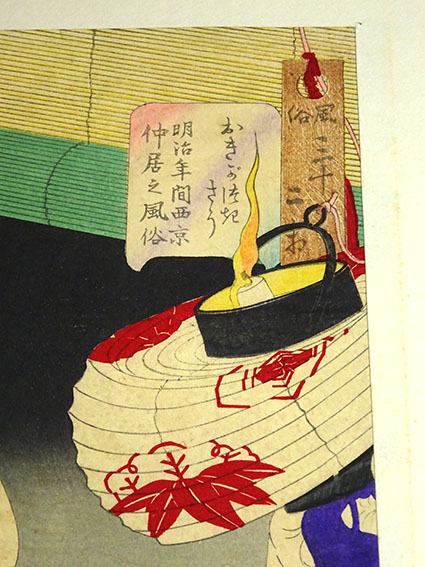 風俗三十二相
おきがつき
さう
明治年間西京
仲居之風俗